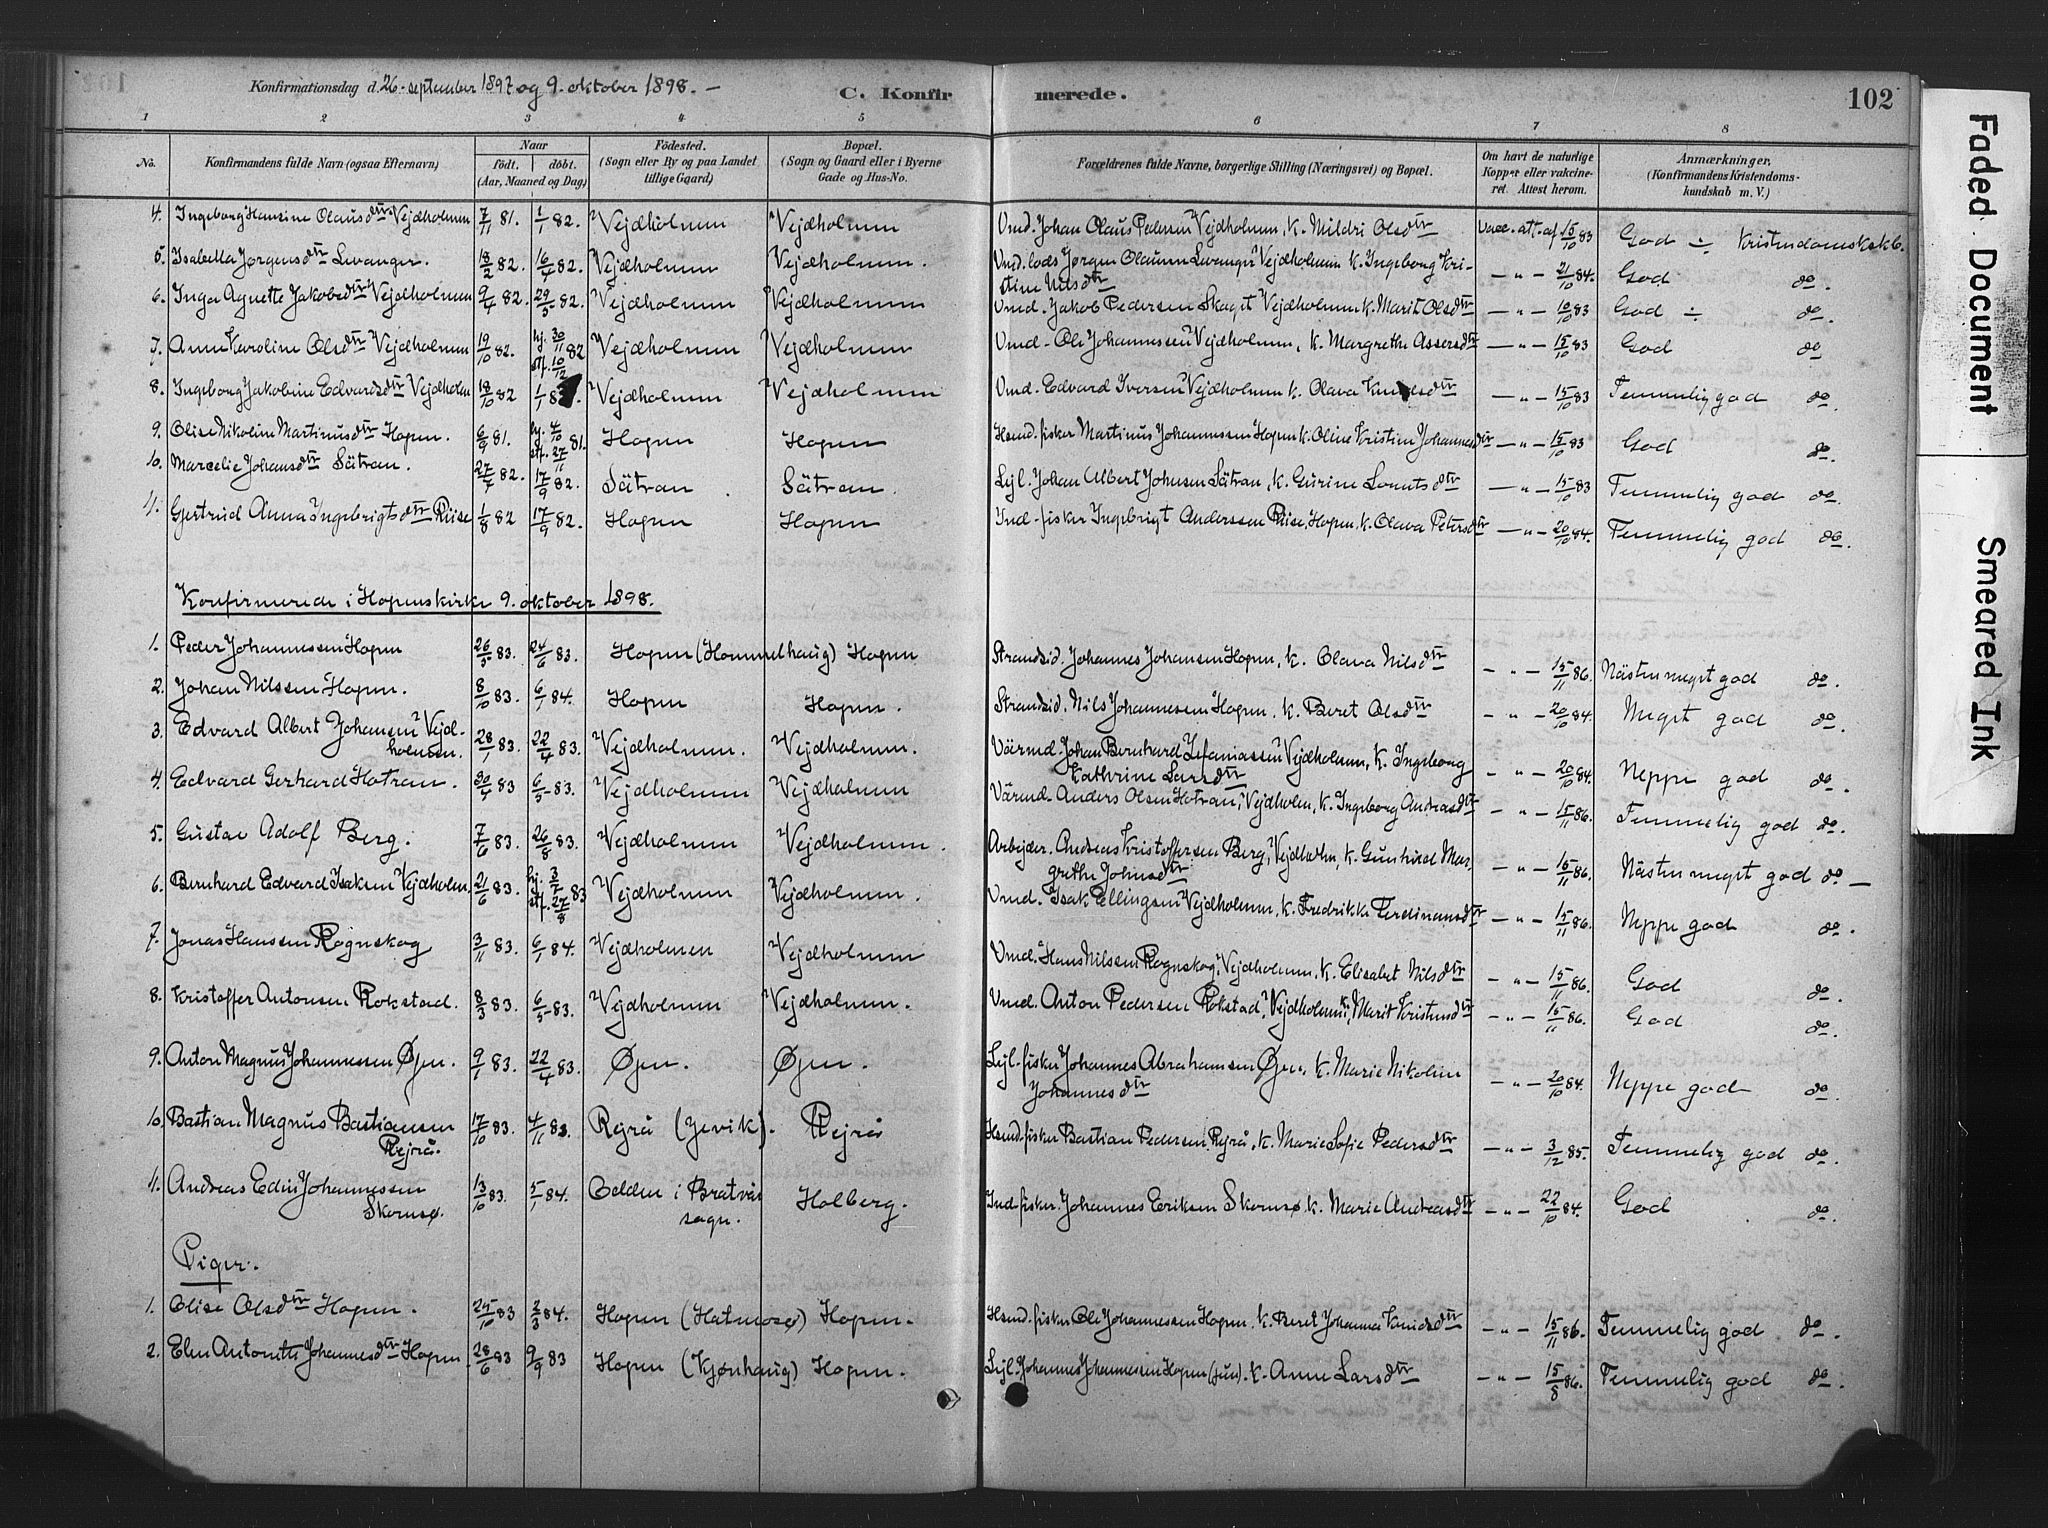 Konfirmationsdag d. 26. september 1897 og 9. oktober 1898. –
C. Konfirmerede.
102
1 2 3 4 5 6 7 8
No. Konfirmandens fulde Navn (ogsaa Efternavn) Naar født. døbt. (Aar, Maaned og Dag) Fødested. (Sogn eller By og paa Landet tillige Gaard) Bopæl. (Sogn og Gaard eller i Byerne Gade og Hus-No. Forældrenes fulde Navne, borgerlige Stilling (Næringsvei) og Bopæl. Om havt de naturlige Kopper eller vakcineret. Attest herom. Anmærkninger, (Konfirmandens Kristendomskundskab m. V.)
4. Ingeborg Hansine Olausdtr Vejdholmen 7/11 81. 1/1 82. Vejdholmen Vejdholmen Vmd. Johan Olaus Pedersen Vejdholmen, k. Mildri Olsdtr Vacc. att. af 15/10 83 God ÷ Kristendomskskb.
5. Isabella Jørgensdtr Levanger. 18/2 82. 16/4 82. Vejdholmen Vejdholmen. Vmd. lods Jørgen Olausen Levanger Vejdholmen k. Ingeborg Kristine Nilsdtr – " – 21/10 84. God do.
6. Inga Agnette Jakobsdtr Vejdholmen 9/4 82. 29/5 82. Vejdholmen Vejdholmen Vmd. Jakob Pedersen Skaget Vejdholmen k. Marit Olsdtr – " – 10/10 83 God ÷ do.
7. Anne Karoline Olsdtr Vejdholmen 19/10 82. hj. 30/11 stf. 10/12 82 Vejdholmen Vejdholmen Vmd. Ole Johannessen Vejdholmen, k. Margrethe Assersdtr – " – 15/10 83 God do
8. Ingeborg Jakobine Edvardsdtr Vejdholm 18/10 82 1/1 83. Vejdholmen Vejdholmen Vmd. Edvard Iversen Vejdholmen k. Olava Knudsdtr – " – 15/10 83 Temmelig god do.
9. Olise Nikoline Martinusdtr Hopen. 6/9 81. hj. 4/10 stf. 27/11 81. Hopen Hopen Hsmd. fisker Martinus Johannessen Hopen k. Oline Kristine Johannesdtr – " – 15/10 83 God do.
10. Marcelie Johansdtr Sätran. 27/7 82. 17/9 82. Sätran. Sätran. Lejl. Johan Albert Johnsen Sätran, k. Gurine Lorntsdtr – " – 15/10 83 Temmelig god do.
11. Gjertrud Anna Ingebrigtsdtr Riise 1/8 82 17/9 82. Hopen Hopen Ind. fisker Ingebrigt Anderssen Riise, Hopen, k. Olava Petersdtr – " – 20/10 84. Temmelig god do.
Konfirmerede i Hopens kirke 9. oktober 1898.
1. Peder Johannessen Hopen 26/5 83. 24/6 83. Hopen (Hommelhaug) Hopen Strandsid. Johannes Johansen Hopen, k. Olava Nilsdtr – " – 15/11 86. Nästen meget god do.
2. Johan Nilssen Hopen. 8/10 83. 6/1 84. Hopen Hopen. Strandsid. Nils Johannessen Hopen, k. Beret Olsdtr – " – 20/10 84. Meget god do.
3. Edvard Albert Johansen Vejdholmen. 28/1 83. 22/4 83. Vejdholmen. Vejdholmen. Värmd. Johan Bernhard Zefaniassen Vejdholmen, k. Ingeborg Kathrine Larsdtr – " – 20/10 84. Neppe god do.
4. Edvard Gerhard Hotran. 30/4 83 6/5 83. Vejdholmen Vejdholmen Värmd. Anders Olsen Hotran, Vejdholm, k. Ingeborg Andreasdtr – " – 15/11 86. Temmelig god do.
5. Gustav Adolf Berg. 7/6 83. 26/8 83. Vejdholmen Vejdholmen. Arbejder. Andreas Kristoffersen Berg, Vejdholm, k. Gunhild Margrethe Johnsdtr – " – 15/11 86. Nästen meget god do –
6. Bernhard Edvard Isaksen Vejdholm. 21/6 83. hj. 3/7 stf. 27/8 83 Vejdholmen Vejdholmen. Vmd. Isak Ellingsen Vejdholmen, k. Fredrikke Ferdinansdtr – " – 15/11 86. Neppe god do.
7. Jonas Hanssen Rognskog 3/11 83. 6/1 84. Vejdholmen Vejdholmen Vmd. Hans Nilssen Rognskog, Vejdholmen, k. Elisabet Nilsdtr – " – 15/11 86. God do.
8. Kristoffer Antonsen Rokstad. 8/3 83. 6/5 83. Vejdholmen Vejdholmen. Vmd. Anton Pedersen Rokstad, Vejdholmen, k. Marit Kristensdtr – " – 15/11 86. God do
9. Anton Magnus Johannessen Øjen. 9/1 83. 22/4 83. Øjen. Øjen. Lejl. fisker Johannes Abrahamsen Øjen, k. Marie Nikoline Johannesdtr – " – 20/10 84. Neppe god do.
10. Bastian Magnus Bastiansen Rejrå. 17/10 83. 4/11 83. Rejrå (Jevik). Rejrå Hsmd. fisker Bastian Pedersen Rejrå, k. Marie Sofie Pedersdtr – " – 3/12 85. Temmelig god do.
11. Andreas Edin Johannessen Skorusø. 13/10 83. 5/1 84. Odden i Bratvär sogn. Holberg. Ind. fisker. Johannes Eriksen Skorusø k. Marie Andreasdtr – " – 22/10 84. God do.
Piger.
1. Olise Olsdtr Hopen. 25/10 83 2/3 84. Hopen (Hatmosø) Hopen. Hsmd. fisker Ole Johannessen Hopen, k. Beret Johanna Knudsdtr – " – 15/11 86. Temmelig god do.
2. Elen Antonette Johannesdtr Hopen 28/6 83 9/9 83 Hopen (Kjønhaug) Hopen. Lejl. Johannes Johannessen Hopen (jun). k. Anne Larsdtr – " – 15/8 86. Temmelig god do.
Faded Document
Smeared Ink